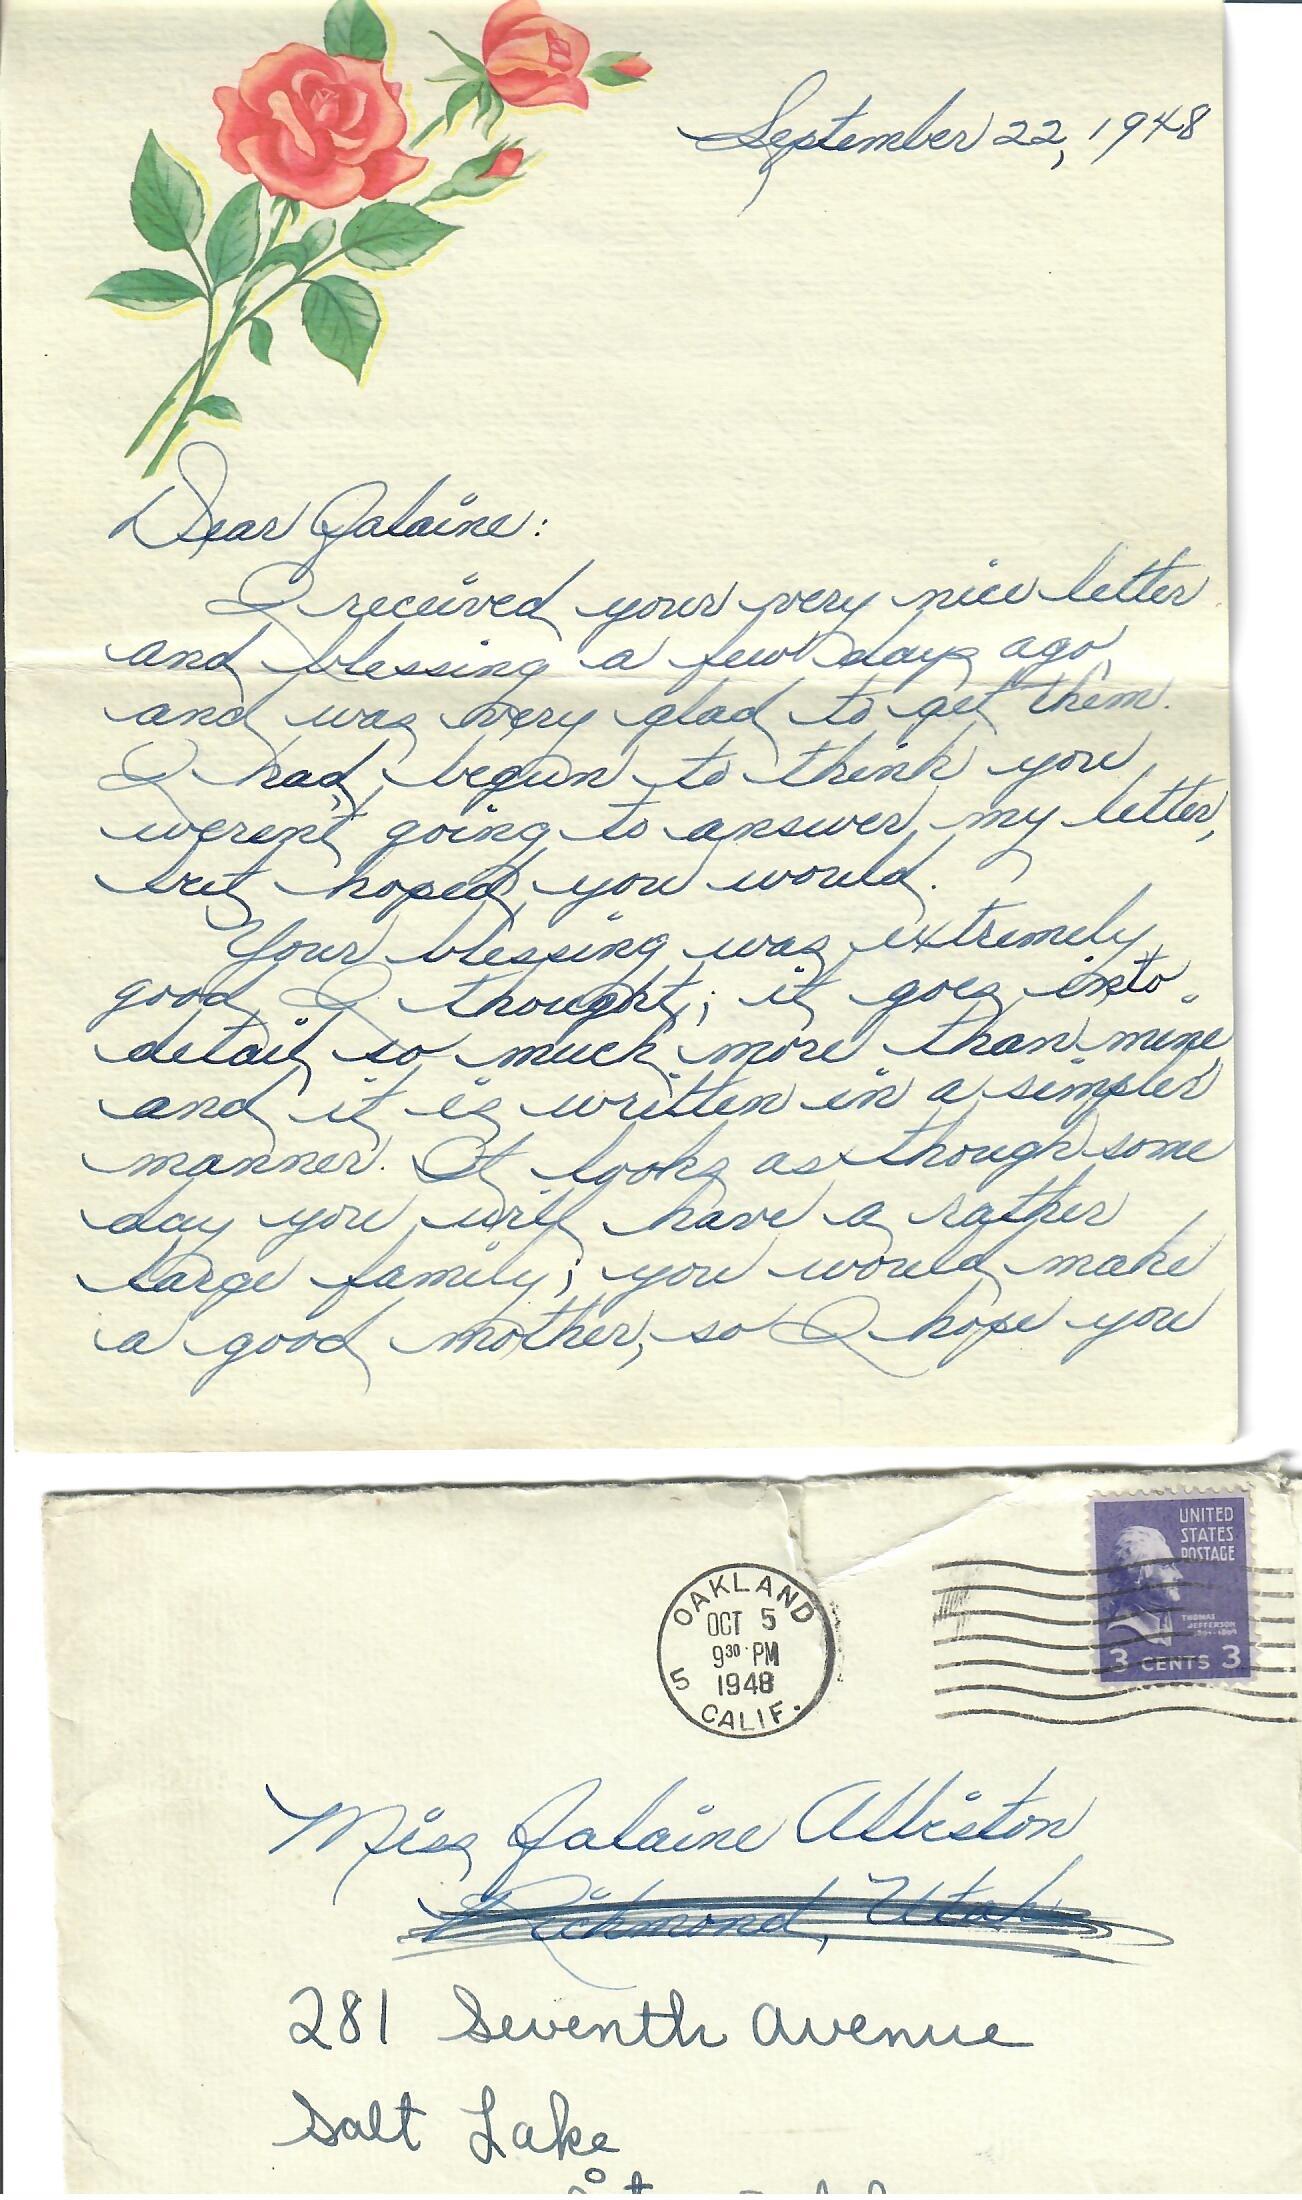 September 22, 1948
Dear Jalaine:
I received your very nice letter
and blessing a few days ago,
and was very glad to get them.
I had begun to think you
weren't going to answer my letter,
but hoped you would.
Your blessing was extremely
good I thought; it goes into
detail so much more than mine
and it is written in a simpler
manner. It looks as though some
day you will have a rather
large family; you would make
a good mother, so I hope you
UNITED
STATES
POSTAGE
THOMAS
JEFFERSON
1801-1809
3 CENTS 3
OAKLAND
OCT 5
9 30 PM
1948
5
CALIF.
Miss Jalaine Alliston
Richmond, Utah
281 Seventh Avenue
Salt Lake